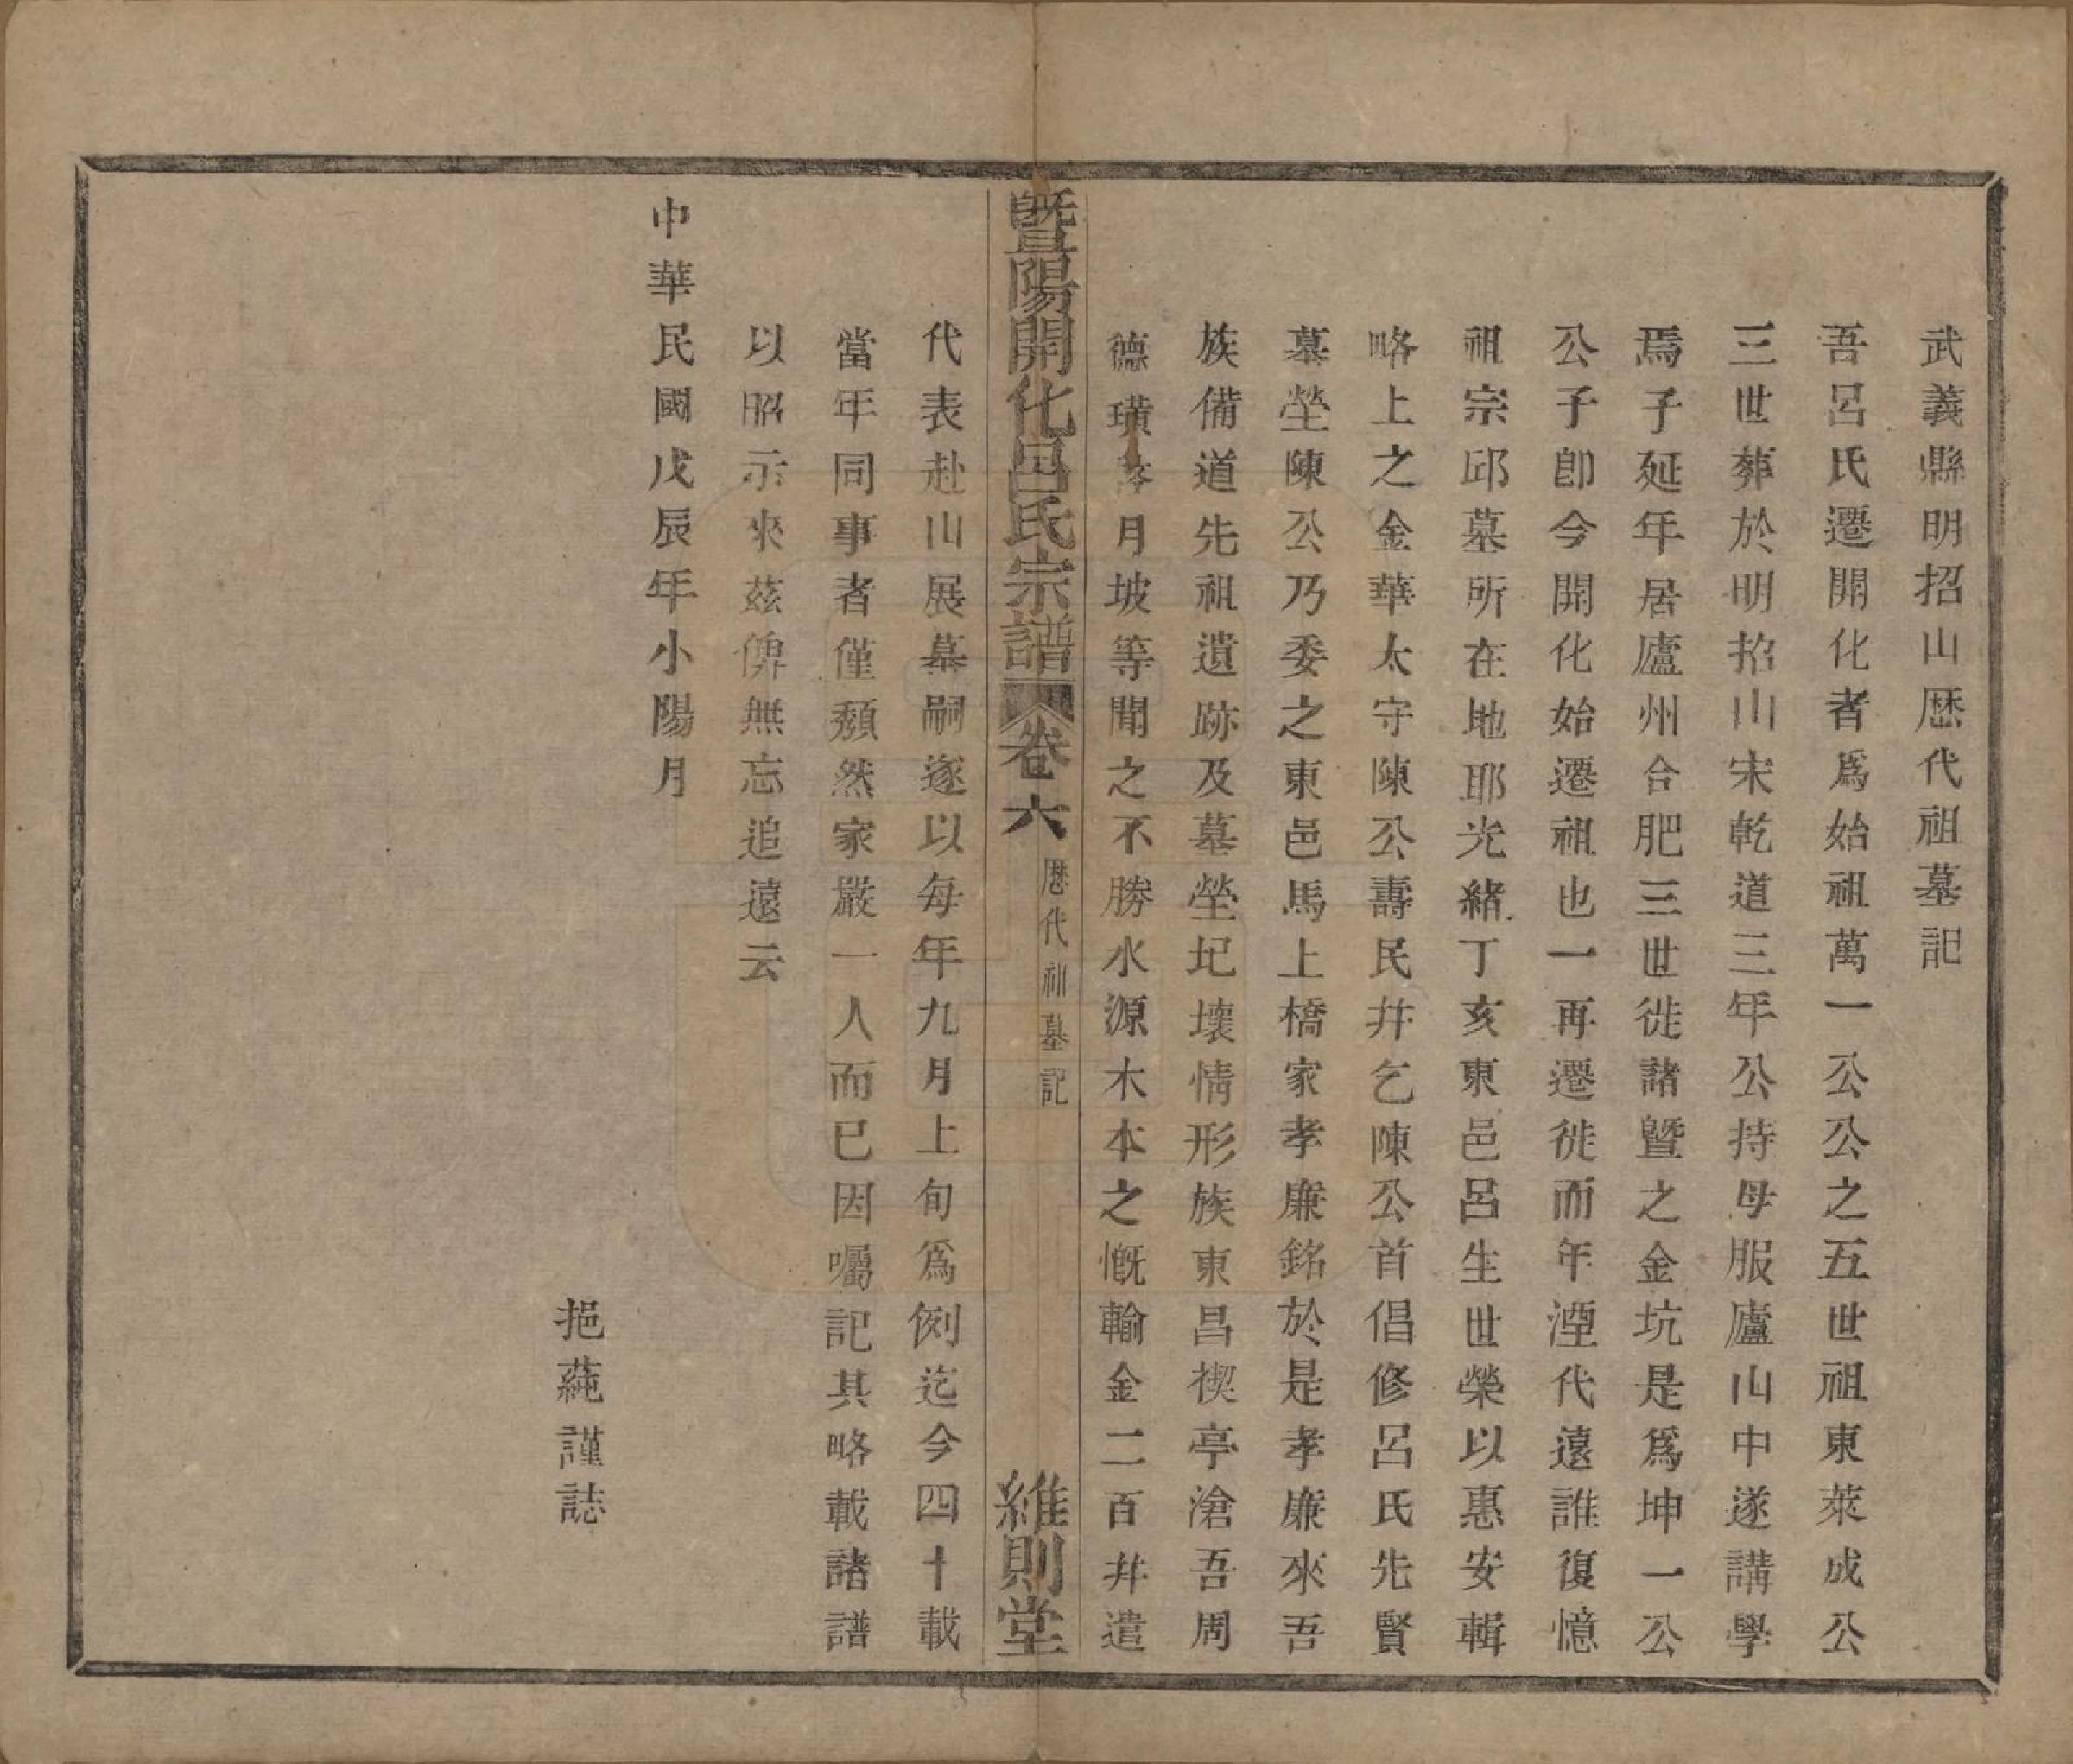 武義縣明招山歴代祖墓記
吾呂氏遷開化者爲始祖萬一公公之五世祖東萊成公
三世葬於明招山宋乾道三年公持母服廬山中遂講學
焉子延年居廬州合肥三世徙諸暨之金坑是爲坤一公
公子卽今開化始遷祖也一再遷徙而年湮代遠誰復憶
祖宗邱墓所在地耶光緒丁亥東邑呂生世榮以惠安輯
略上之金華太守陳公壽民幷乞陳公首倡修呂氏先賢
墓塋陳公乃委之東邑馬上橋家孝廉銘於是孝廉來吾
族備道先祖遺跡及墓塋圮壞情形族東昌禊亭滄吾周
德璜月坡等聞之不勝水源木本之慨輸金二百幷遣
暨陽開化呂氏宗譜 卷六 歴代祖墓記 維則堂
代表赴山展墓嗣逐以每年九月上旬爲例迄今四十載
當年同事者僅頽然家嚴一人而已因囑記其略載諸譜
以昭示來茲俾無忘追遠云
中華民國戊辰年小陽月
挹蒓謹誌